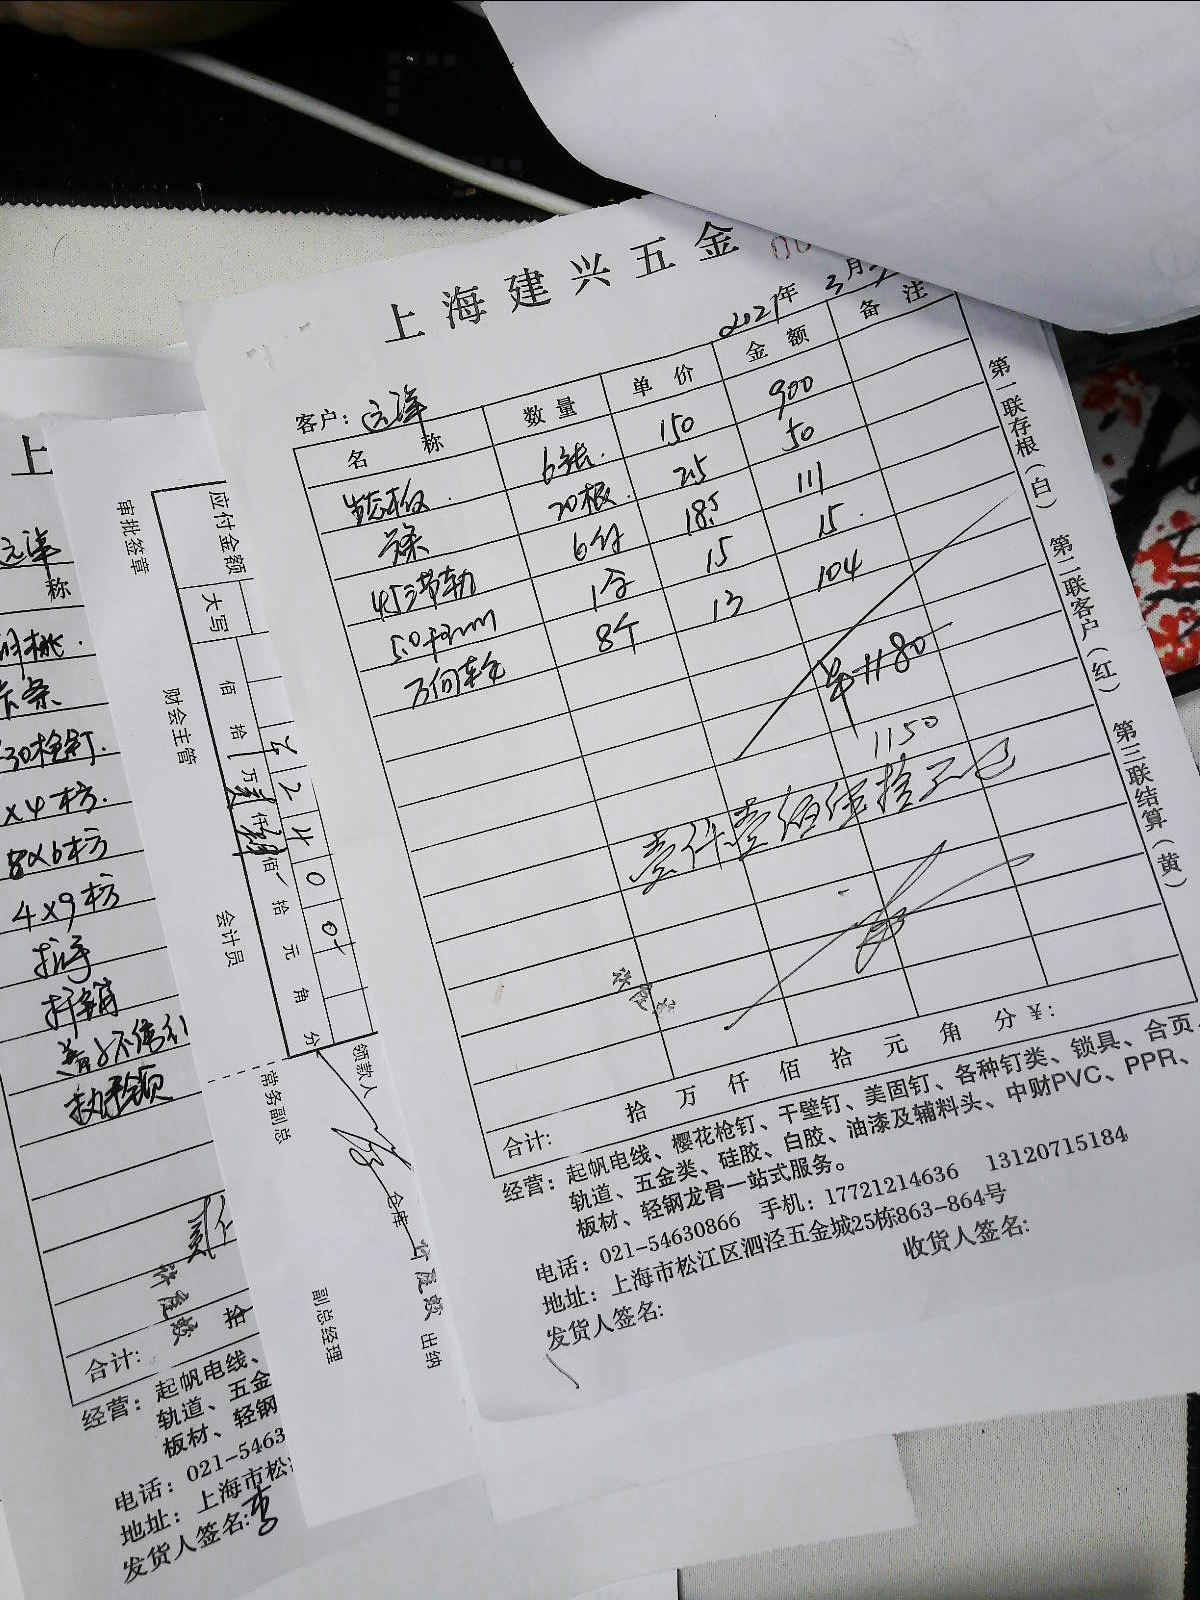 上海建兴五金
00
2021年 3月
客户: 远洋
名 称 数量 单价 金额 备注
生态板 6张 150 900
20根 2.5 50
45三节轨 6付 18.5 111
1合 15 15.
万向轮 8个 13 104
共1180
1150
壹仟壹佰伍拾元
许爱
合计: 拾 万 仟 佰 拾 元 角 分 ¥:
经营: 起帆电线、樱花枪钉、干壁钉、美固钉、各种钉类、锁具、合页、
轨道、五金类、硅胶、白胶、油漆及辅料头、中财PVC、PPR、
板材、轻钢龙骨一站式服务。
电话: 021-54630866 手机: 17721214636 13120715184
地址: 上海市松江区泗泾五金城25栋863-864号
发货人签名: 收货人签名:
第一联存根(白) 第二联客户(红) 第三联结算(黄)
审批签章 财会主管 会计员 常务副总 副总经理
应付金额 大写 佰 拾 万 仟 佰 拾 元 角 分
¥ 2 4 0 0
领款人 仓库 出纳
上
远洋
称
30枪钉.
×4枋.
8×6枋
4×9枋
拉手
插销
执手锁
贰仟
拾
合计:
经营: 起帆电线、
轨道、五金
板材、轻钢
电话: 021-5463
地址: 上海市松
发货人签名: 李